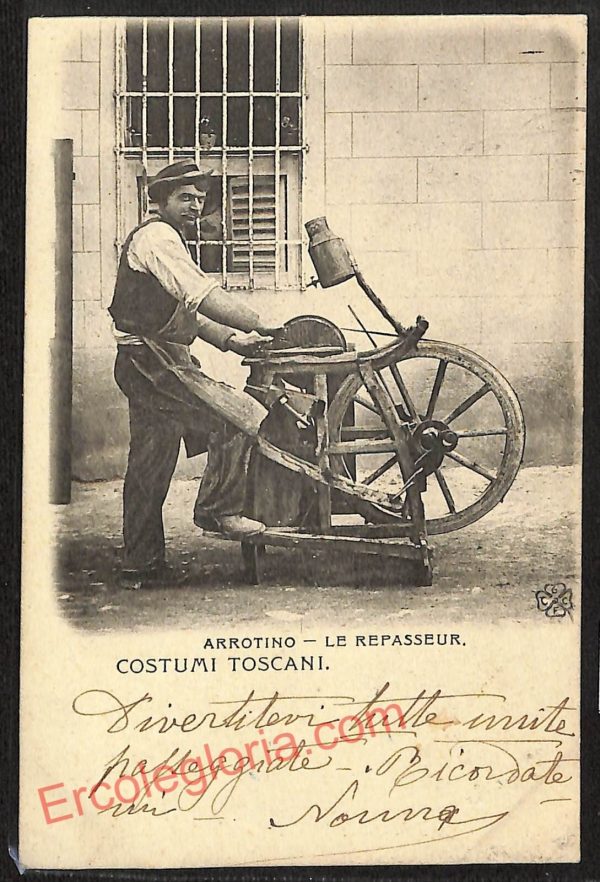 ARROTINO – LE REPASSEUR.
COSTUMI TOSCANI.
Divertitevi tutte unite
passeggiate – Ricordate
mi – Nonna
Ercolegloria.com